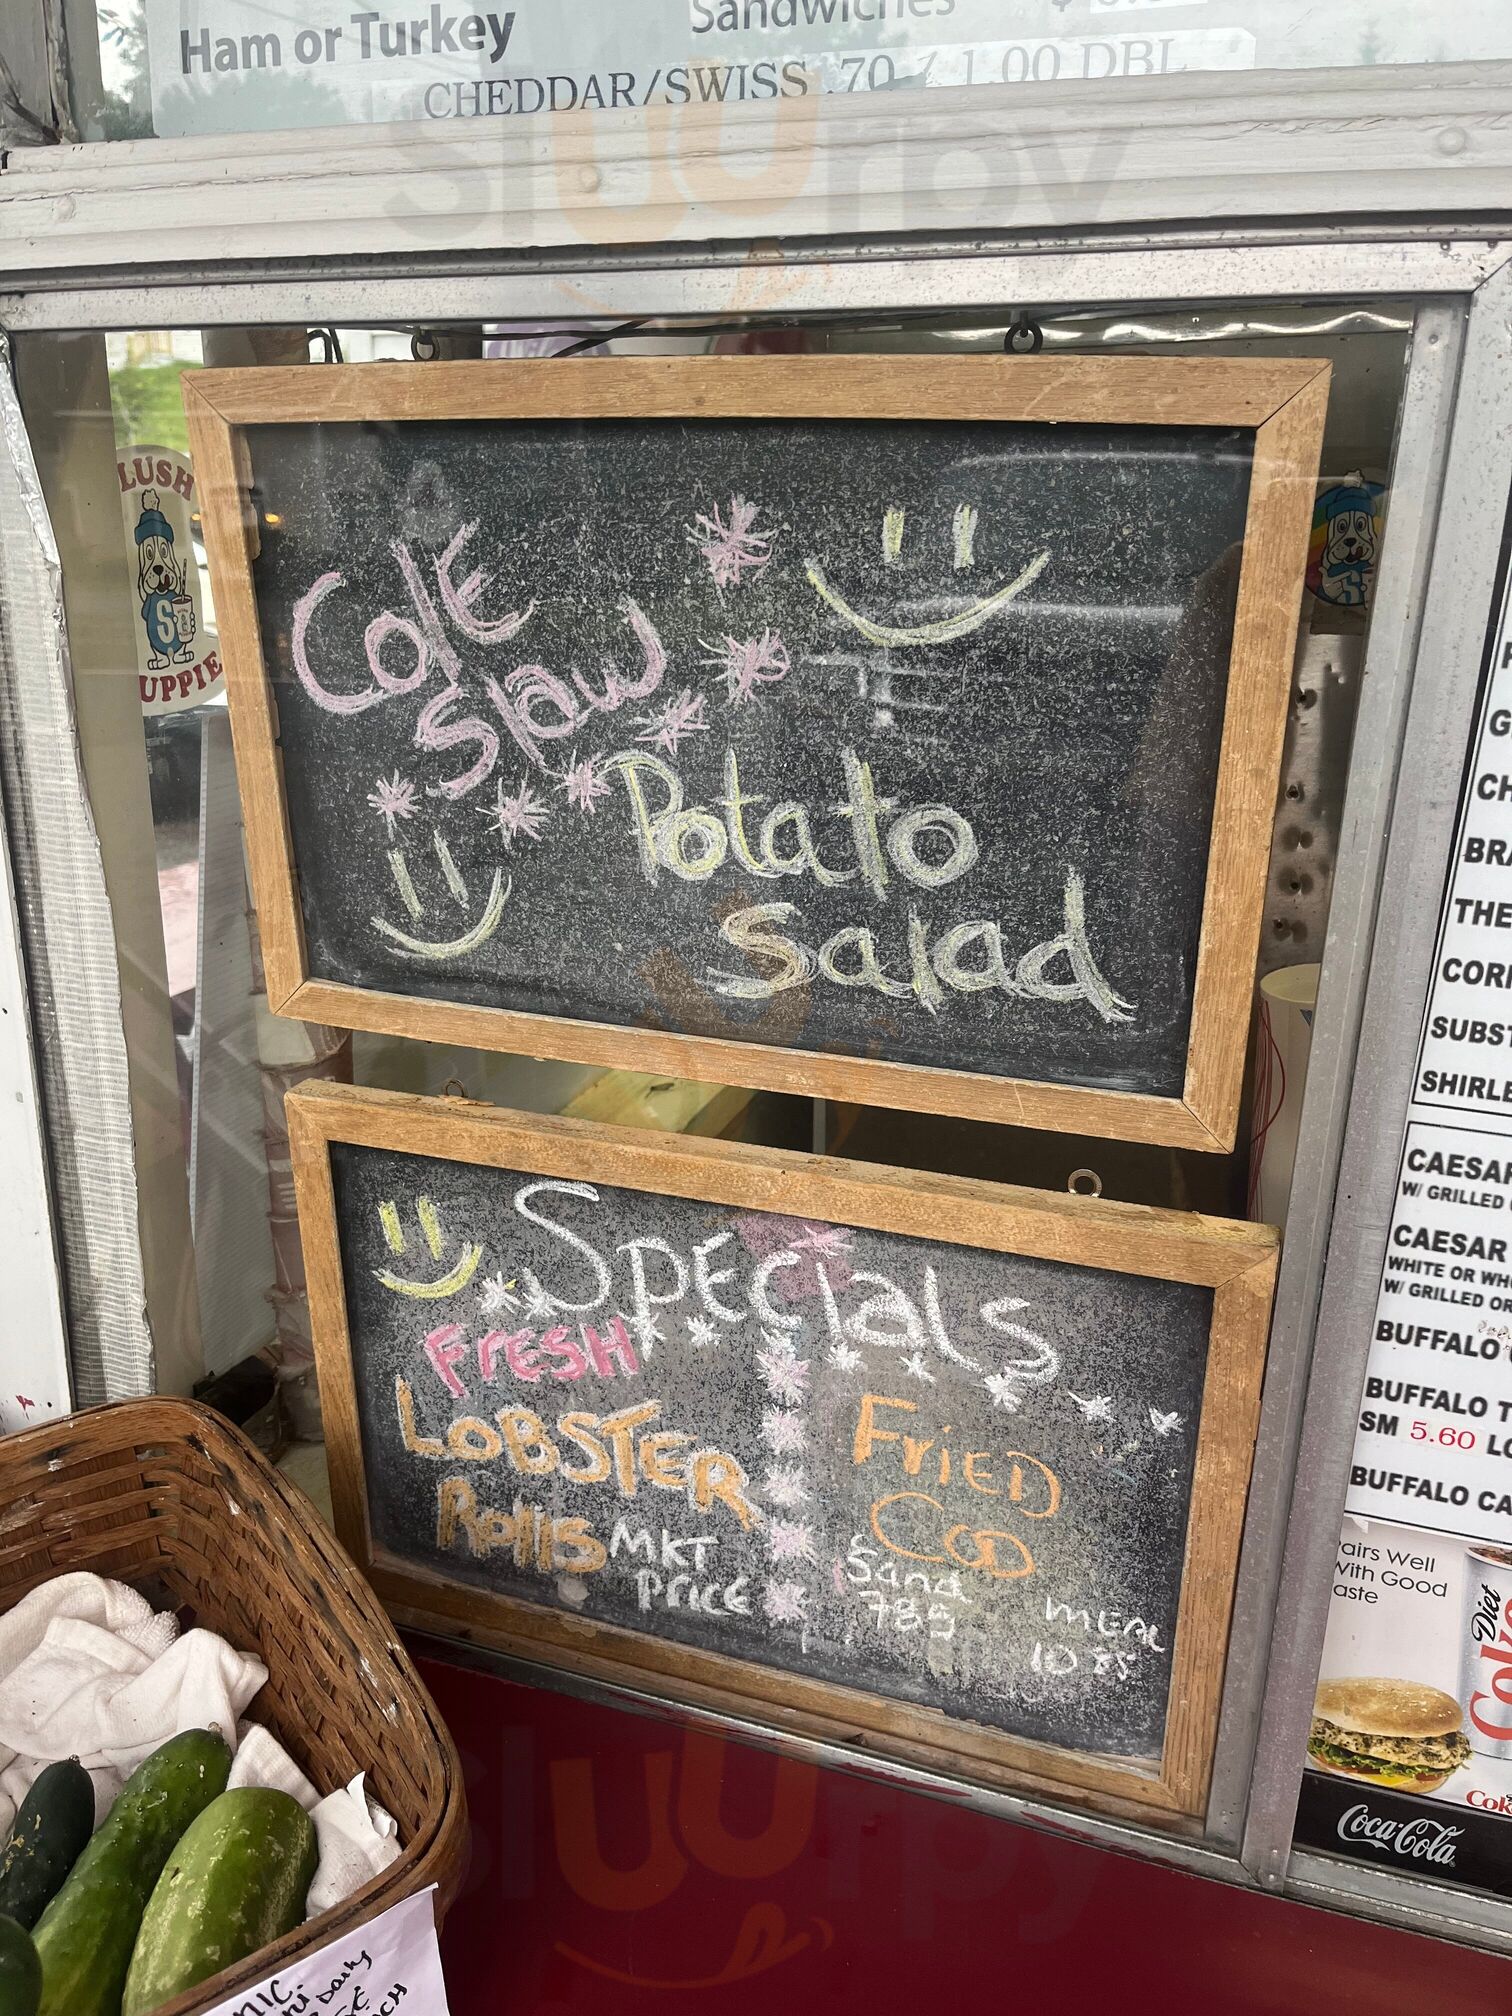 Ham or Turkey
Sandwiches
CHEDDAR/SWISS .70 / 1.00 DBL
sluurpy
LUSH
S
UPPIE
ColE
Slaw
Potato
Salad
SpEcials
FrESH
LOBSTER
Rolls MKT
PricE
FriED
COD
Sand
MEAL
10 85
THE
CORN
SUBST
SHIRLE
CAESAR
W/ GRILLED
CAESAR
WHITE OR WH
W/ GRILLED OR
BUFFALO
BUFFALO T
SM 5.60 L
BUFFALO CA
airs Well
With Good
aste
Diet
Coke
Coca-Cola
sluurpy